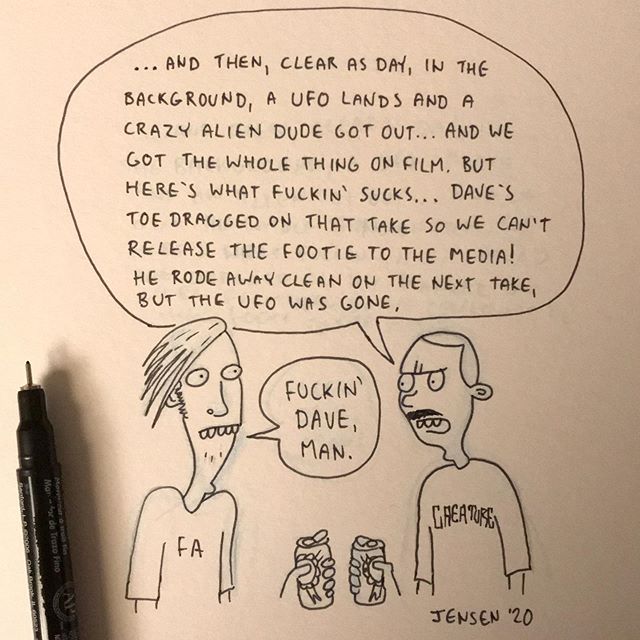 ... AND THEN, CLEAR AS DAY, IN THE
BACKGROUND, A UFO LANDS AND A
CRAZY ALIEN DUDE GOT OUT... AND WE
GOT THE WHOLE THING ON FILM. BUT
HERE'S WHAT FUCKIN' SUCKS... DAVE'S
TOE DRAGGED ON THAT TAKE SO WE CAN'T
RELEASE THE FOOTIE TO THE MEDIA!
HE RODE AWAY CLEAN ON THE NEXT TAKE,
BUT THE UFO WAS GONE.
FUCKIN'
DAVE,
MAN.
FA
CREATURE
JENSEN '20